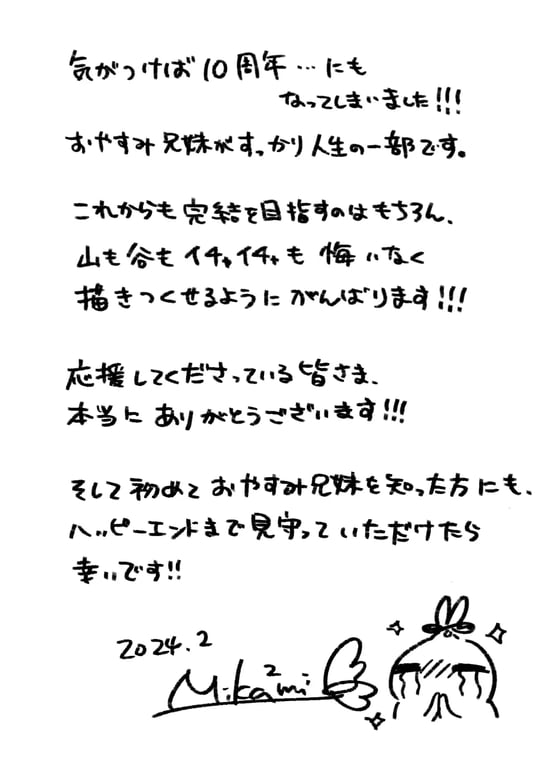 気がつけば10周年…にも
なってしまいました!!!
おやすみ兄妹がすっかり人生の一部です。
これからも完結を目指すのはもちろん、
山も谷もイチャイチャも悔いなく
描きつくせるようにがんばります!!!
応援してくださっている皆さま、
本当にありがとうございます!!!
そして初めておやすみ兄妹を知った方にも、
ハッピーエンドまで見守っていただけたら
幸いです!!
2024.2
Mika2mi